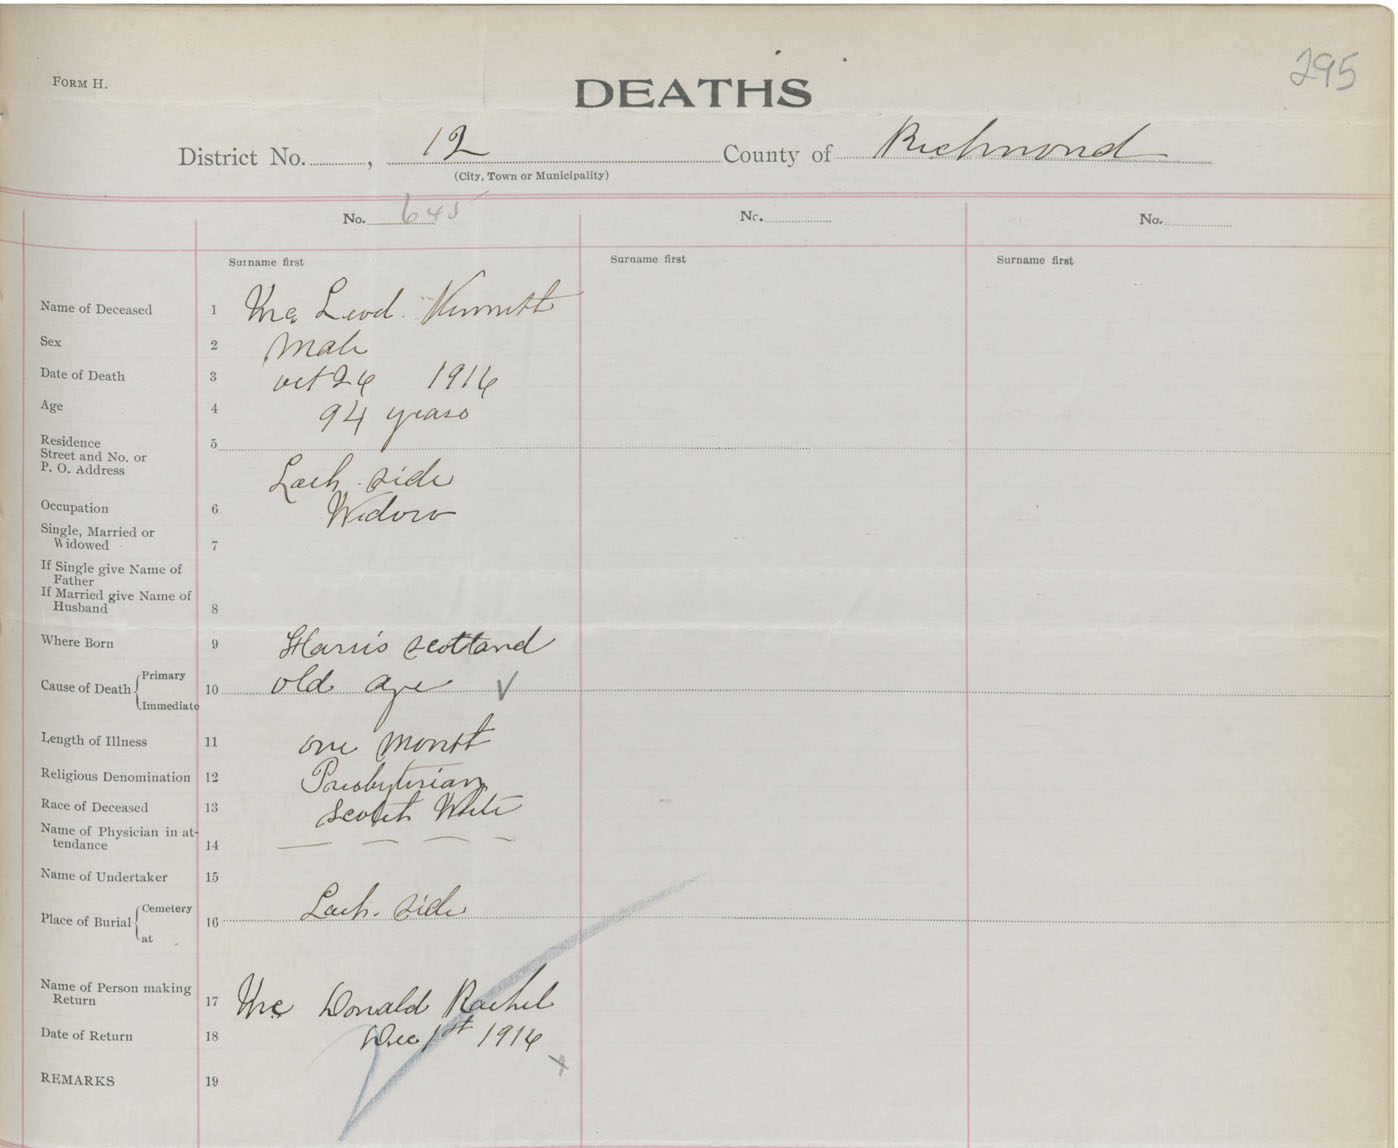 295
FORM H.
DEATHS
District No. , 12 County of Richmond
(City, Town or Municipality)
No. 645 No. No.
Surname first Surname first Surname first
Name of Deceased 1 Mc Leod. Kennith
Sex 2 Male
Date of Death 3 oct 26 1916
Age 4 94 years
Residence
Street and No. or
P. O. Address 5
Loch side
Occupation 6 Widow
Single, Married or
Widowed 7
If Single give Name of
Father
If Married give Name of
Husband 8
Where Born 9 Harris Scotland
Cause of Death { Primary
Immediate 10 old age
Length of Illness 11 one month
Religious Denomination 12 Presbyterian
Race of Deceased 13 Scotch White
Name of Physician in at-
tendance 14
Name of Undertaker 15
Place of Burial { Cemetery
at 16 Loch. side
Name of Person making
Return 17 Mc Donald Rachel
Date of Return 18 Dec 1st 1916
REMARKS 19